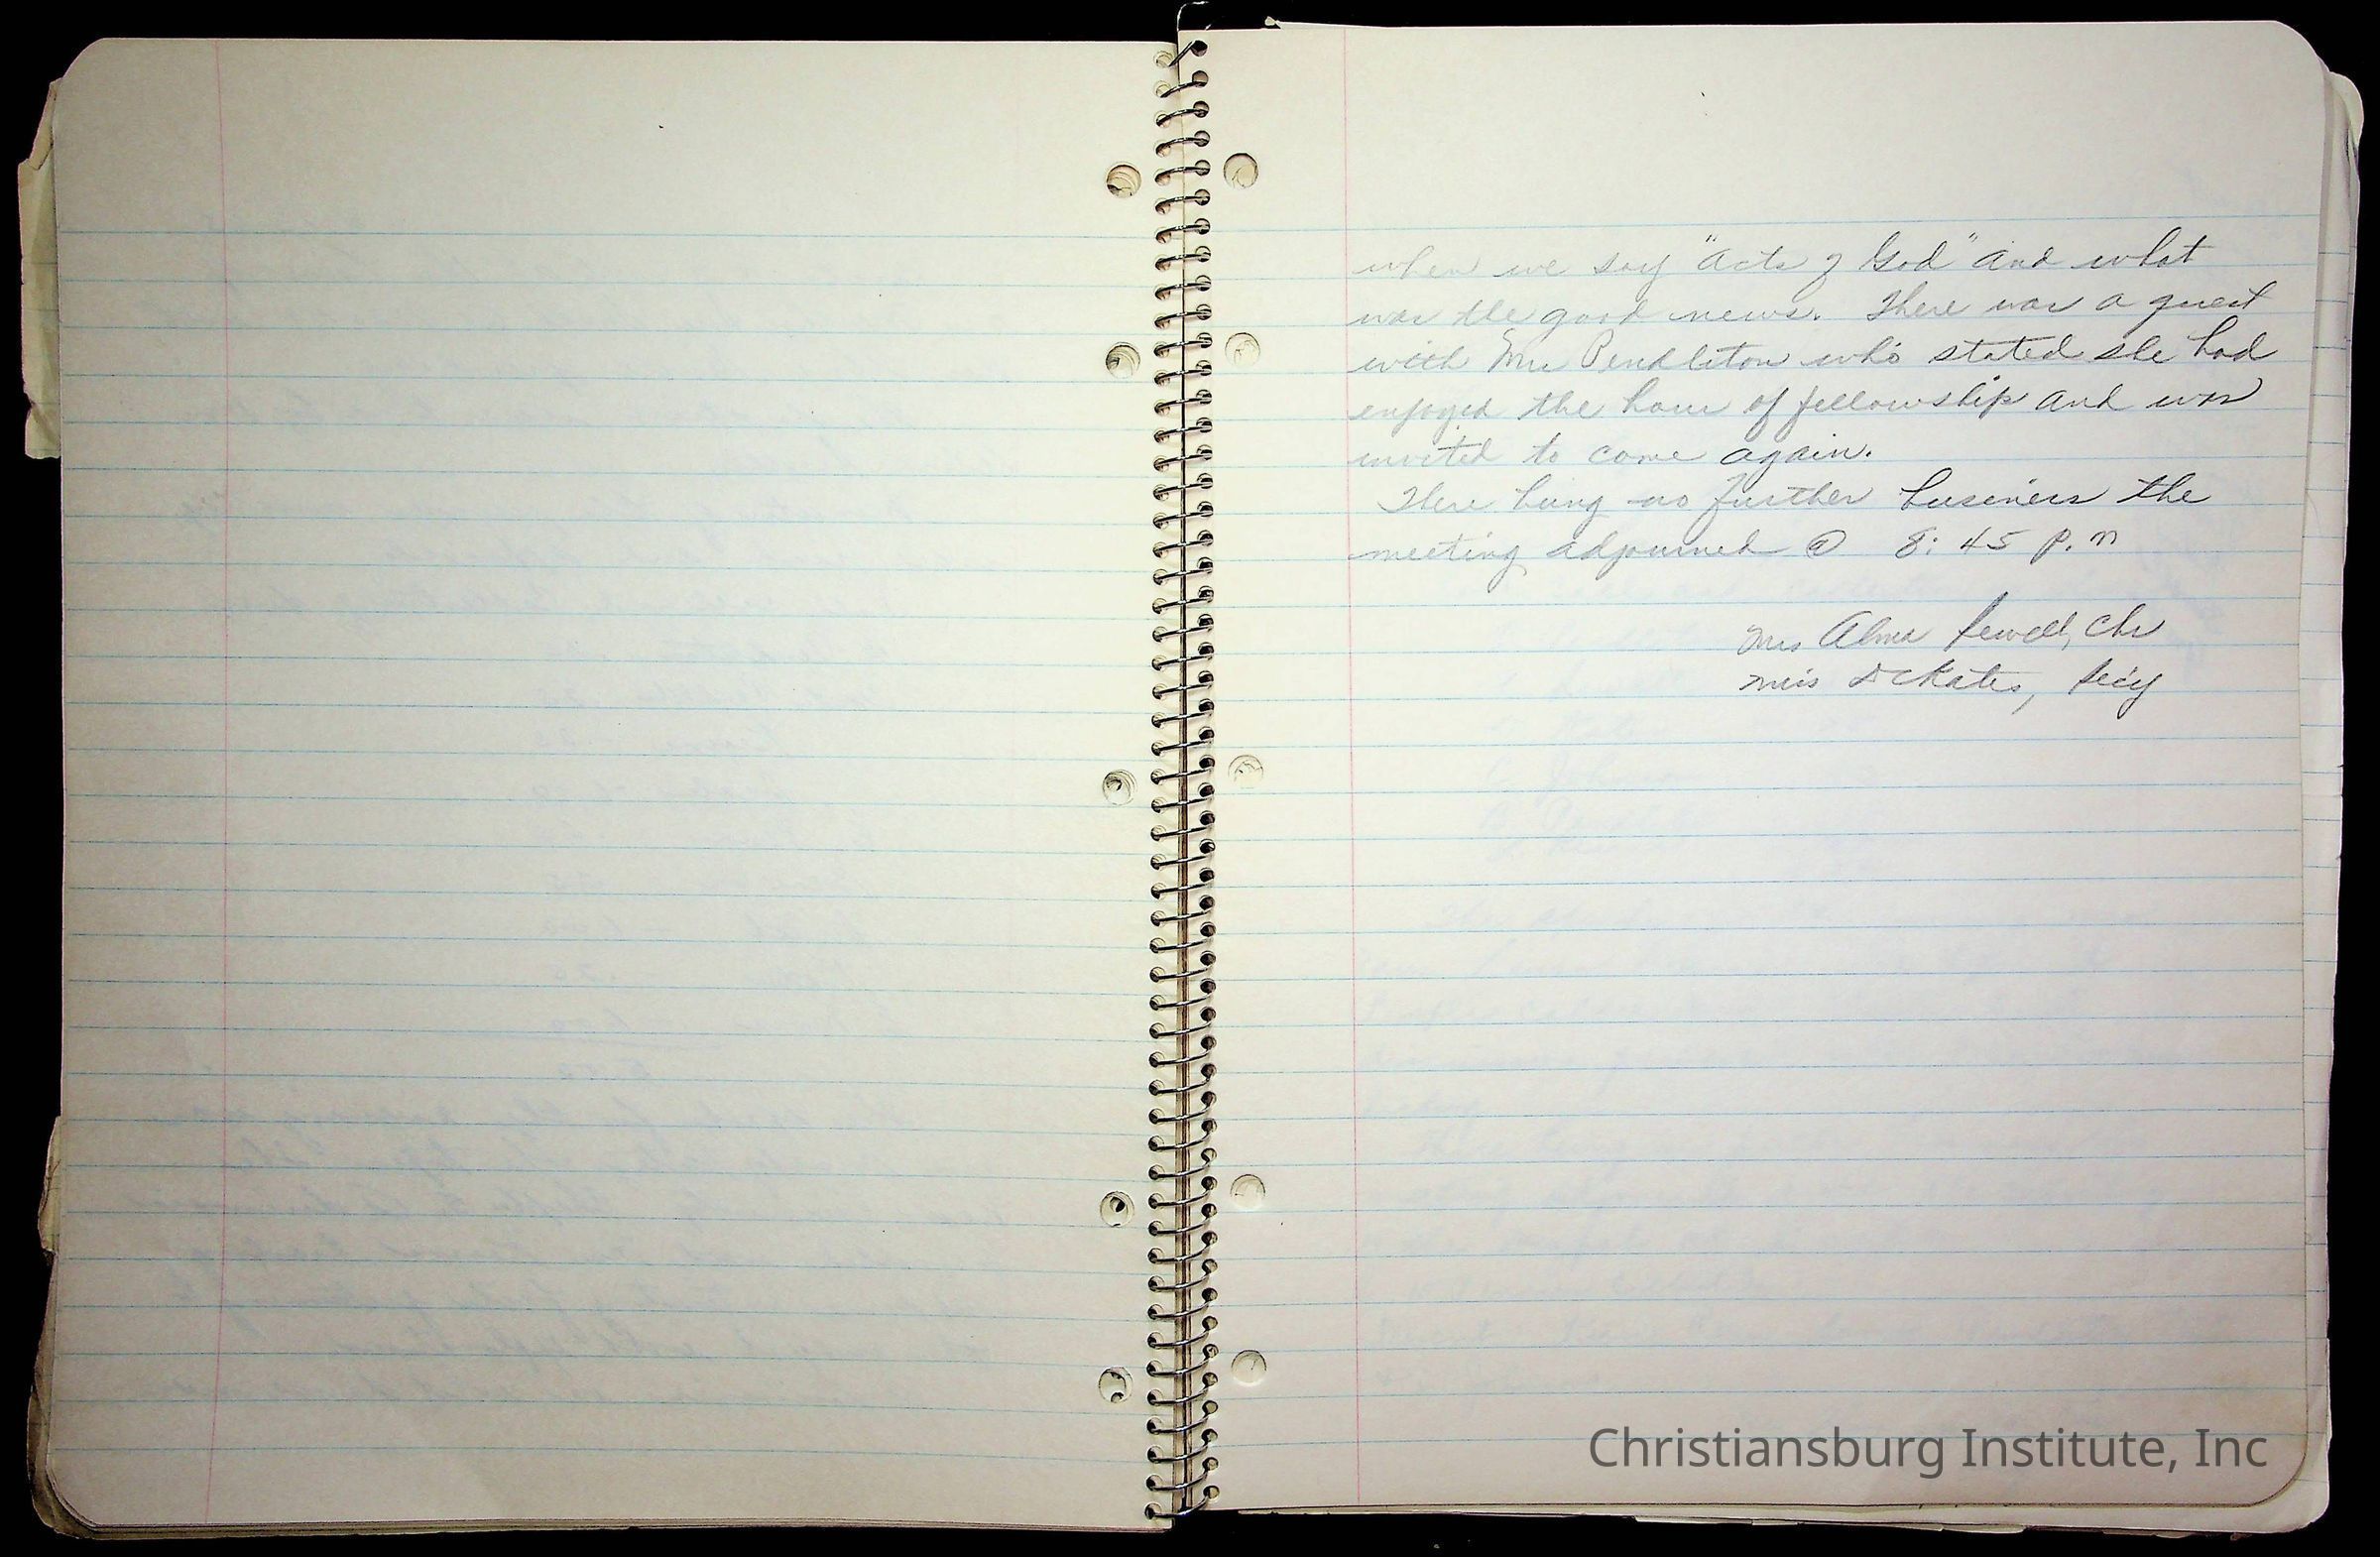 when we say "acts of God" and what
was the good news. There was a guest
with Mrs Pendleton who stated she had
enjoyed the hour of fellowship and was
invited to come again.
There being no further business the
meeting adjourned @ 8:45 p.m
Mrs Alma Sewell, Chr
Miss D Kates, Sec'y
Christiansburg Institute, Inc